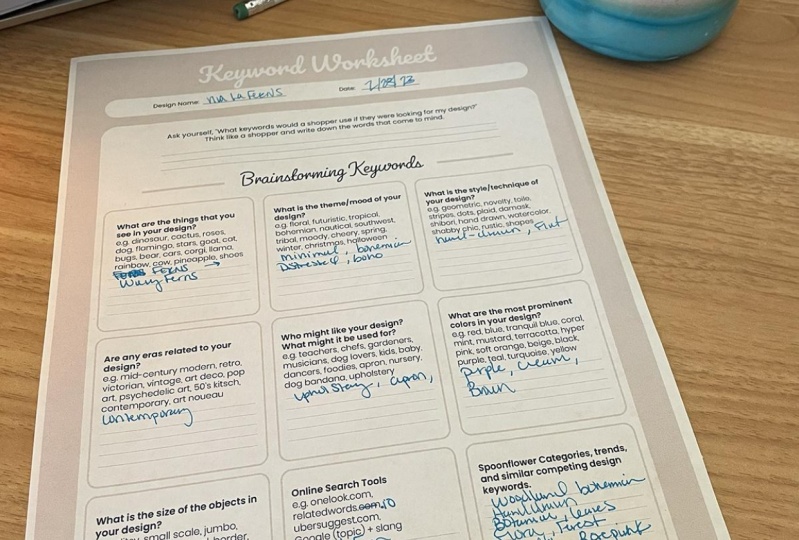 Keyword Worksheet
Design Name: Date: 2/28/23
Ask yourself, "What keywords would a shopper use if they were looking for my design?"
Think like a shopper and write down the words that come to mind.
Brainstorming Keywords
What are the things that you
see in your design?
e.g. dinosaur, cactus, roses,
dog, flamingo, stars, goat, cat,
bugs, bear, cars, corgi, llama,
rainbow, cow, pineapple, shoes
FERNS →
Wavy Ferns
What is the theme/mood of your
design?
e.g. floral, futuristic, tropical,
bohemian, nautical, southwest,
tribal, moody, cheery, spring,
winter, christmas, halloween
minimal, bohemian
Distressed, boho
What is the style/technique of
your design?
e.g. geometric, novelty, toile,
stripes, dots, plaid, damask,
shibori, hand drawn, watercolor,
shabby chic, rustic, shapes
hand-drawn, Flat
Are any eras related to your
design?
e.g. mid-century modern, retro,
victorian, vintage, art deco, pop
art, psychedelic art, 50's kitsch,
contemporary, art noueau
contemporary
Who might like your design?
What might it be used for?
e.g. teachers, chefs, gardeners,
musicians, dog lovers, kids, baby,
dancers, foodies, apron, nursery,
dog bandana, upholstery
upholstery, apron,
What are the most prominent
colors in your design?
e.g. red, blue, tranquil blue, coral,
mint, mustard, terracotta, hyper
pink, soft orange, beige, black,
purple, teal, turquoise, yellow
purple, cream,
Brown
What is the size of the objects in
your design?
small scale, jumbo,
border,
Online Search Tools
e.g. onelook.com,
relatedwords.com.io
ubersuggest.com,
Google (topic) + slang
Spoonflower Categories, trends,
and similar competing design
keywords.
Woodland bohemian
Hand drawn
Botanical, leaves
Forest